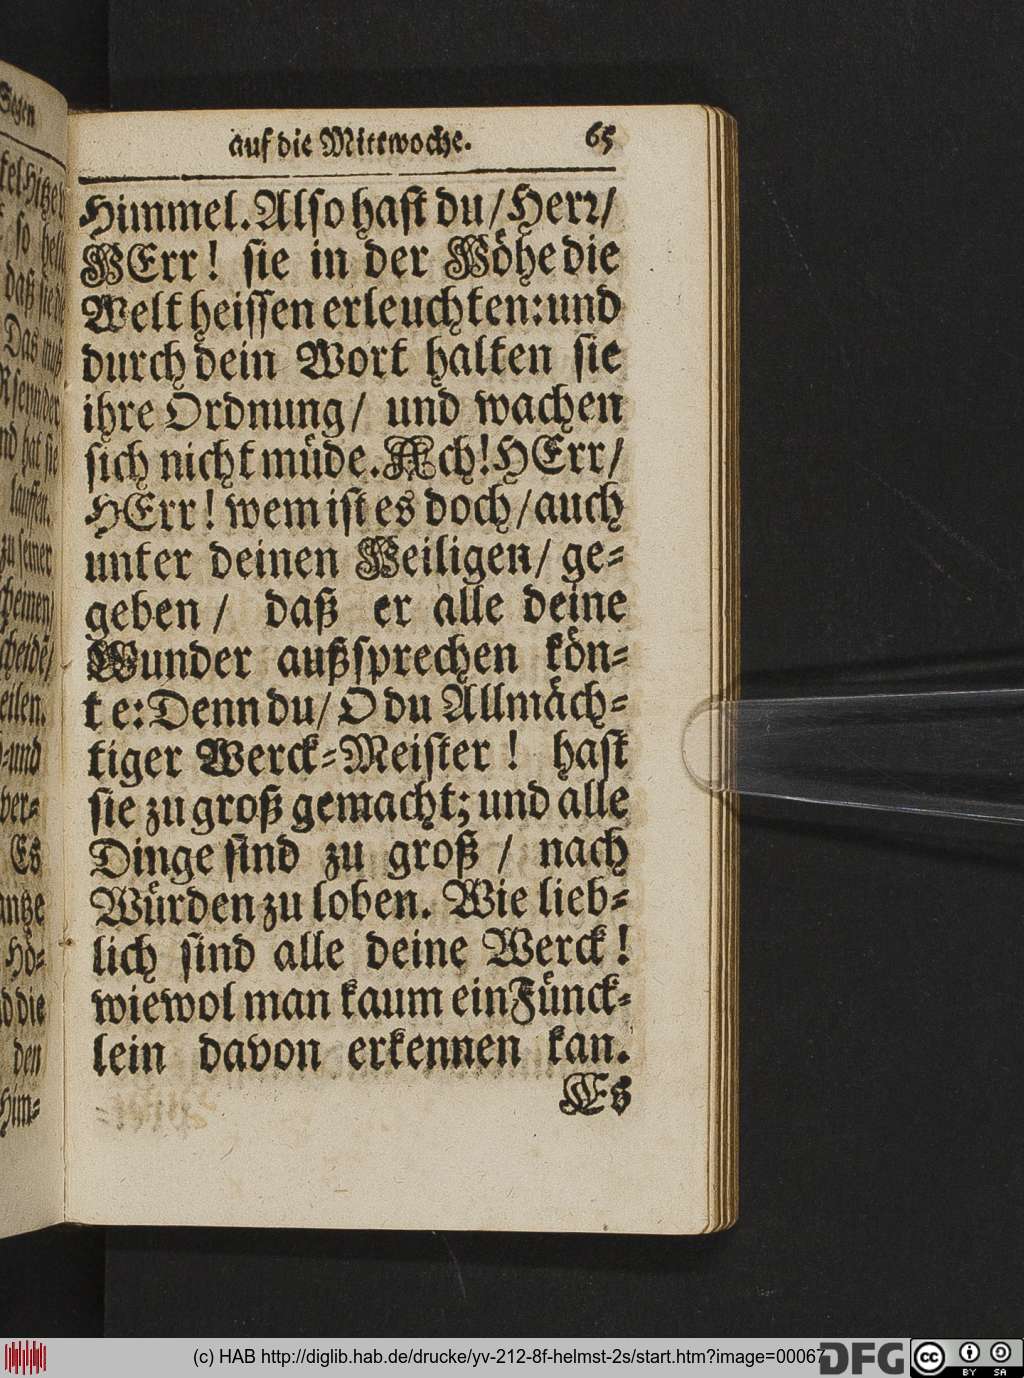 Segen
auf die Mittwoche. 65
Himmel. Also hast du/ Herr/
HErr! sie in der Höhe die
Welt heissen erleuchten: und
durch dein Wort halten sie
ihre Ordnung/ und wachen
sich nicht müde. Ach! HErr/
HErr! wem ist es doch/ auch
unter deinen Heiligen/ ge-
geben/ daß er alle deine
Wunder außsprechen kön-
te: Denn du/ O du Allmäch-
tiger Werck-Meister! hast
sie zu groß gemacht; und alle
Dinge sind zu groß/ nach
Würden zu loben. Wie lieb-
lich sind alle deine Werck!
wiewol man kaum ein Fünck-
lein davon erkennen kan.
Es
(c) HAB http://diglib.hab.de/drucke/yv-212-8f-helmst-2s/start.htm?image=00067
DFG
cc
BY SA